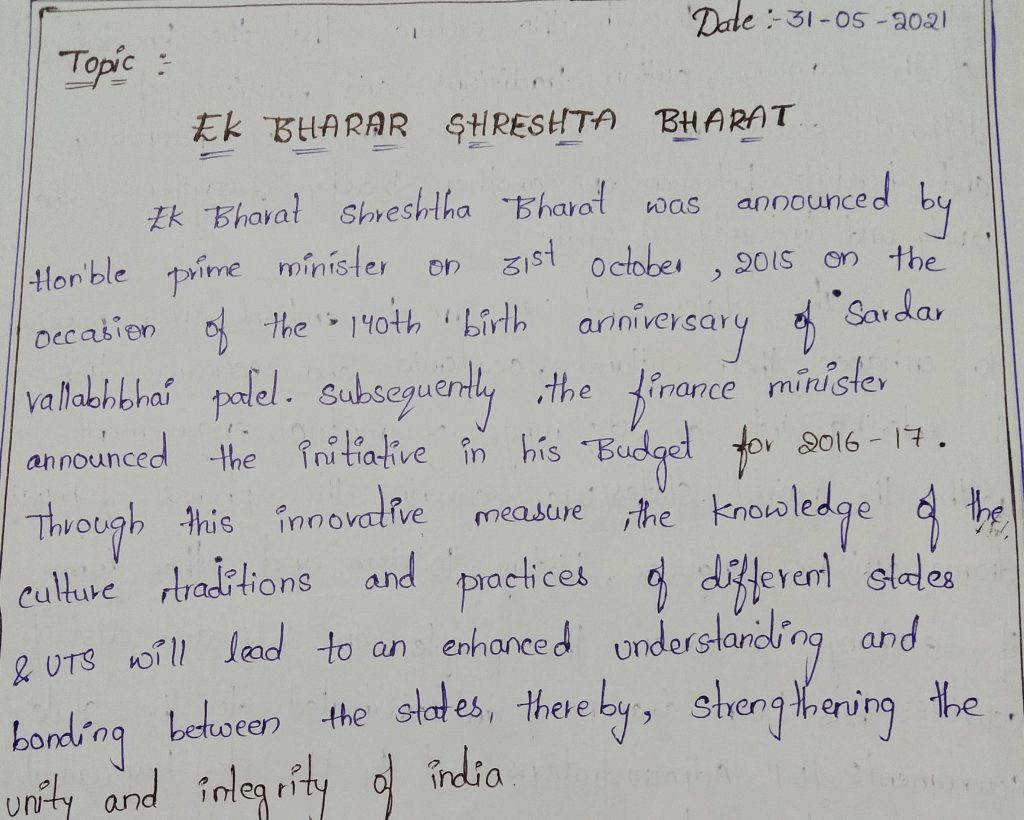 Date :- 31-05-2021
Topic :-
EK BHARAR SHRESHTA BHARAT
Ek Bharat Shreshtha Bharat was announced by
Hon'ble prime minister on 31st october , 2015 on the
occasion of the 140th birth anniversary of Sardar
vallabhbhai patel. subsequently ,the finance minister
announced the initiative in his Budget for 2016-17.
Through this innovative measure ,the knowledge of the
culture ,traditions and practices of different states
& UTS will lead to an enhanced understanding and
bonding between the states, thereby, strengthening the
unity and integrity of india.